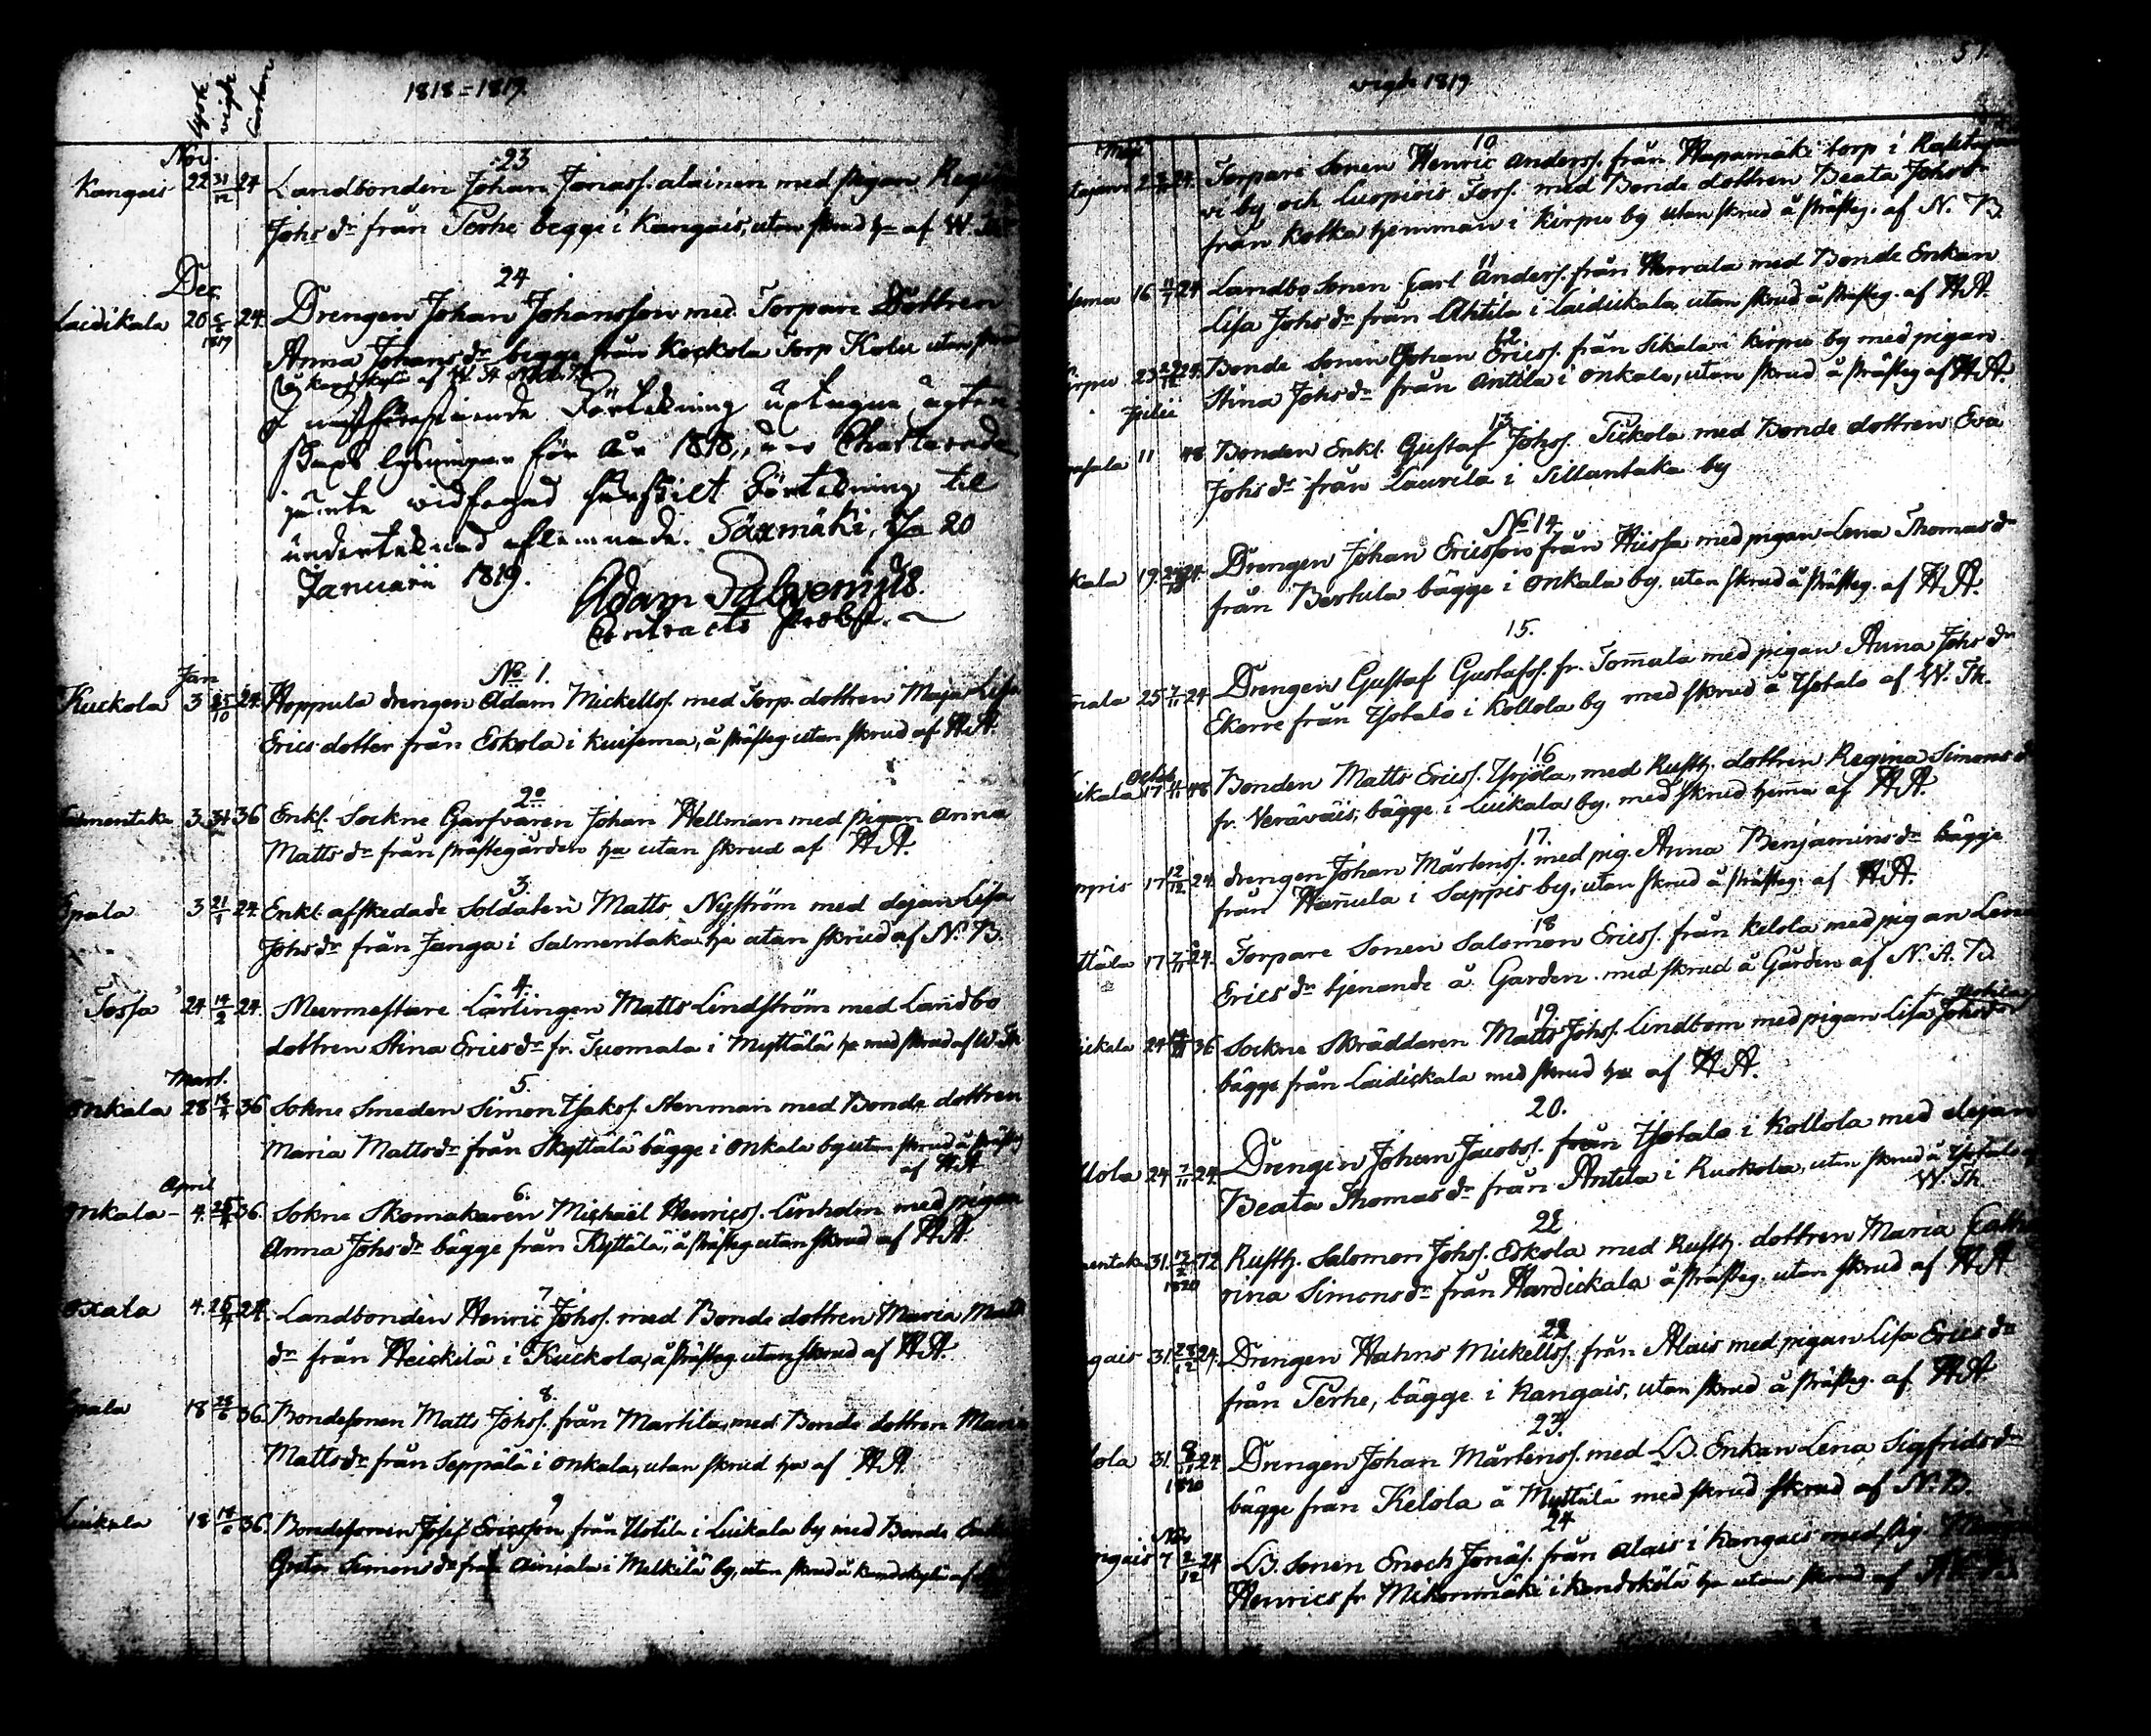 1818=1819.
lyste vigde
Nov.
23
Kangais 22 31/12 24 Landbonden Johan Jonass. alainen med pigan Regina
Johs dr från Perhe begge i Kangais, utan skrud h:a af W. Th.
Dec.
24
Laidikala 20 6/1 1819 24. Drengen Johan Johansson med Torpare Dottren
Anna Johans dr begge från Kockola Torp Kolu utan skrud
å Kandskylä af
I næstföreståendе Förtekning uptagne ägten-
skaps lysningar för år 1818, äro Charterade
jämte widfogad särskilt Förtekning til
undertecknad aflemnade. Säxmäki, d. 20
Januarii 1819.
Adam Palvenius.
Contracts Probst.
Jan
No 1.
Kuckola 3 25/10 24. Hoppula drengen Adam Mickelss. med Torp. dottren Maja Lisa
Erics dotter från Eskola i Kuisema, å prästeg. utan skrud af H.A.
2o
Salmentaka 3 31/ 36 Enkl. Sockne Garfvaren Johan Hellman med pigan Anna
Matts dr från prästegården h:a utan skrud af H.A.
3.
3 21/1 24. Enkl. afskedade Soldaten Matts Nyström med dejan Lisa
Johs dr från Janga i Salmentaka h:a utan skrud af N. B.
4.
Tossa 24 14/2 24. Meurmestare Lärlingen Matts Lindström med Landbo
dottren Stina Erics dr fr. Tuomala i Myttälä h:a med skrud af W. Th
Mart.
5.
Onkala 28 36 Sokne Smeden Simon Isaks. Stenman med Bonde dottren
Maria Matts dr från Skyttälä bägge i Onkala by utan skrud å prästeg
af H.A
April
6.
Onkala 4. 36. Sokne Skomakaren Michaël Henrics. Linholm med pigan
Anna Johs dr bägge från Kyttälä, å prästeg. utan skrud af H.A
7
4. 24. Landbonden Henric Johss. med Bonde dottren Maria Matts
dr från Heickilä i Kuckola, å prästeg. utan skrud af H.A.
8.
18 36. Bondesonen Matts Johss. från Martila, med Bonde dottren Maria
Matts dr från Seppälä i Onkala, utan skrud h:a af H.A.
9
Luikala 18 36. Bondesonen Josef Ericsson från Uotila i Luikala by med Bonde
Greta Simons dr från i Melkilä by, utan skrud å Kandskylä af
51
vigde 1819
Maji
10
24. Torpare Sonen Henric Anderss. från Hapamäki torp i
vi by och Luopiois Förs. med Bonde dottren Beata Johs dr
från Kotka hemman i Kirpu by utan skrud å prästeg. af N. B.
11
16 11/7 24 Landbo Sonen Carl Anders. från Herrala med Bonde Enkan
Lisa Johs dr från Ahtila i Laidickala, utan skrud å prästeg. af H.A.
12
23 24. Bonde Sonen Johan Ericss. från Sikala i Kirpu by med pigan
Stina Johs dr från Antila i Onkala, utan skrud å prästeg af H.A.
Julii
13
11 48 Bonden Enkl. Gustaf Johss. Tickola med Bonde dottren Eva
Johs dr från Laurila i Sillantaka by
No 14.
19. 24. Drengen Johan Ericsson från Hiissa med pigan Lena Thomas dr
från Bertula bägge i Onkala by. utan skrud å prästeg. af H.A.
15.
25 7/11 24 Drengen Gustaf Gustafss. fr. Tomala med pigan Anna Johs dr
Ekorre från Ysotalo i Kollola by med skrud å Ysotalo af W. Th.
Octob.
16
17 48 Bonden Matts Ericss. Yrjölä, med Rusth. dottren Regina Simons dr
fr. Veräväis, bägge i Luikala by. med skrud hema af H.A.
17.
17 12/12 24. drengen Johan Mårtenss. med pig. Anna Benjamins dr bägge
från Hannula i Sappis by, utan skrud å prästeg. af H.A.
18
17 7/11 24. Torpare Sonen Salomon Ericss. från Kelola med pigan Lena
Erics dr tjenande å Garden. med skrud å Gården af N. A. B.
19.
24 36 Sockne Skräddaren Matts Johss. Lindbom med pigan Lisa Johs dr
bägge från Laidickala med skrud h:a af H.A.
20.
24 7/11 24. Drengen Johan Jacobss. från Ysotalo i Kollola med dejan
Beata Thomas dr från Antila i Ruokola, utan skrud å Ysotalo af
W. Th
21
31. 13/2 1820 72 Rusth. Salomon Johss. Eskola med Rusth. dottren Maria Catha
rina Simons dr från Hardickala å prästeg. utan skrud af H.A.
22
31. 24. Drengen Hahns Mickelss. från Alais med pigan Lisa Erics dr
från Perhe, bägge i Kangais, utan skrud å prästeg. af H.A.
23.
31. 1820 24 Drengen Johan Mårtenss. med LB. Enkan Lena Sigfrids dr
bägge från Kelola å Myttälä med skrud skrud af N. B.
24
7 2/12 24 LB. Sonen Enoch Jonäs. från Alais i Kangais med pig.
Henrics fr Mikonmäki i Kandskölä h:a utan skrud af